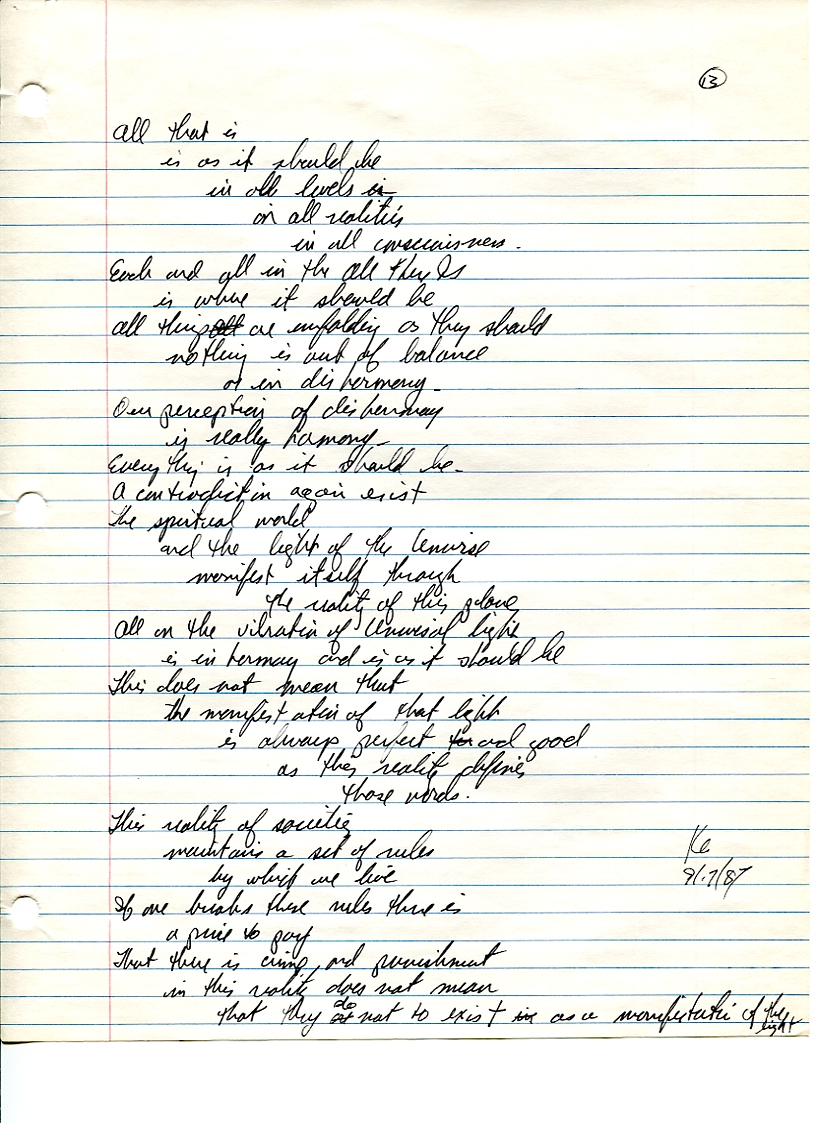 13
All that is
is as it should be
in all levels in
on all realities
in all consciousness.
Each and all in the All that Is
is where it should be
all things all are unfolding as they should
nothing is out of balance
or in disharmony
Our perception of disharmony
is really harmony
Everything is as it should be
A contradiction again exist
The spiritual world
and the light of the Universe
manifest itself through
the reality of this plane
All on the vibration of Universal light
is in harmony and is as it should be
This does not mean that
the manifestation of that light
is always perfect and good
as this reality defines
those words.
This reality of societies
maintains a set of rules
by which we live
If one breaks these rules there is
a price to pay
That there is crime, and punishment
in this reality does not mean
that they do not to exist in as a manifestation of the
light
Ke
9/7/87